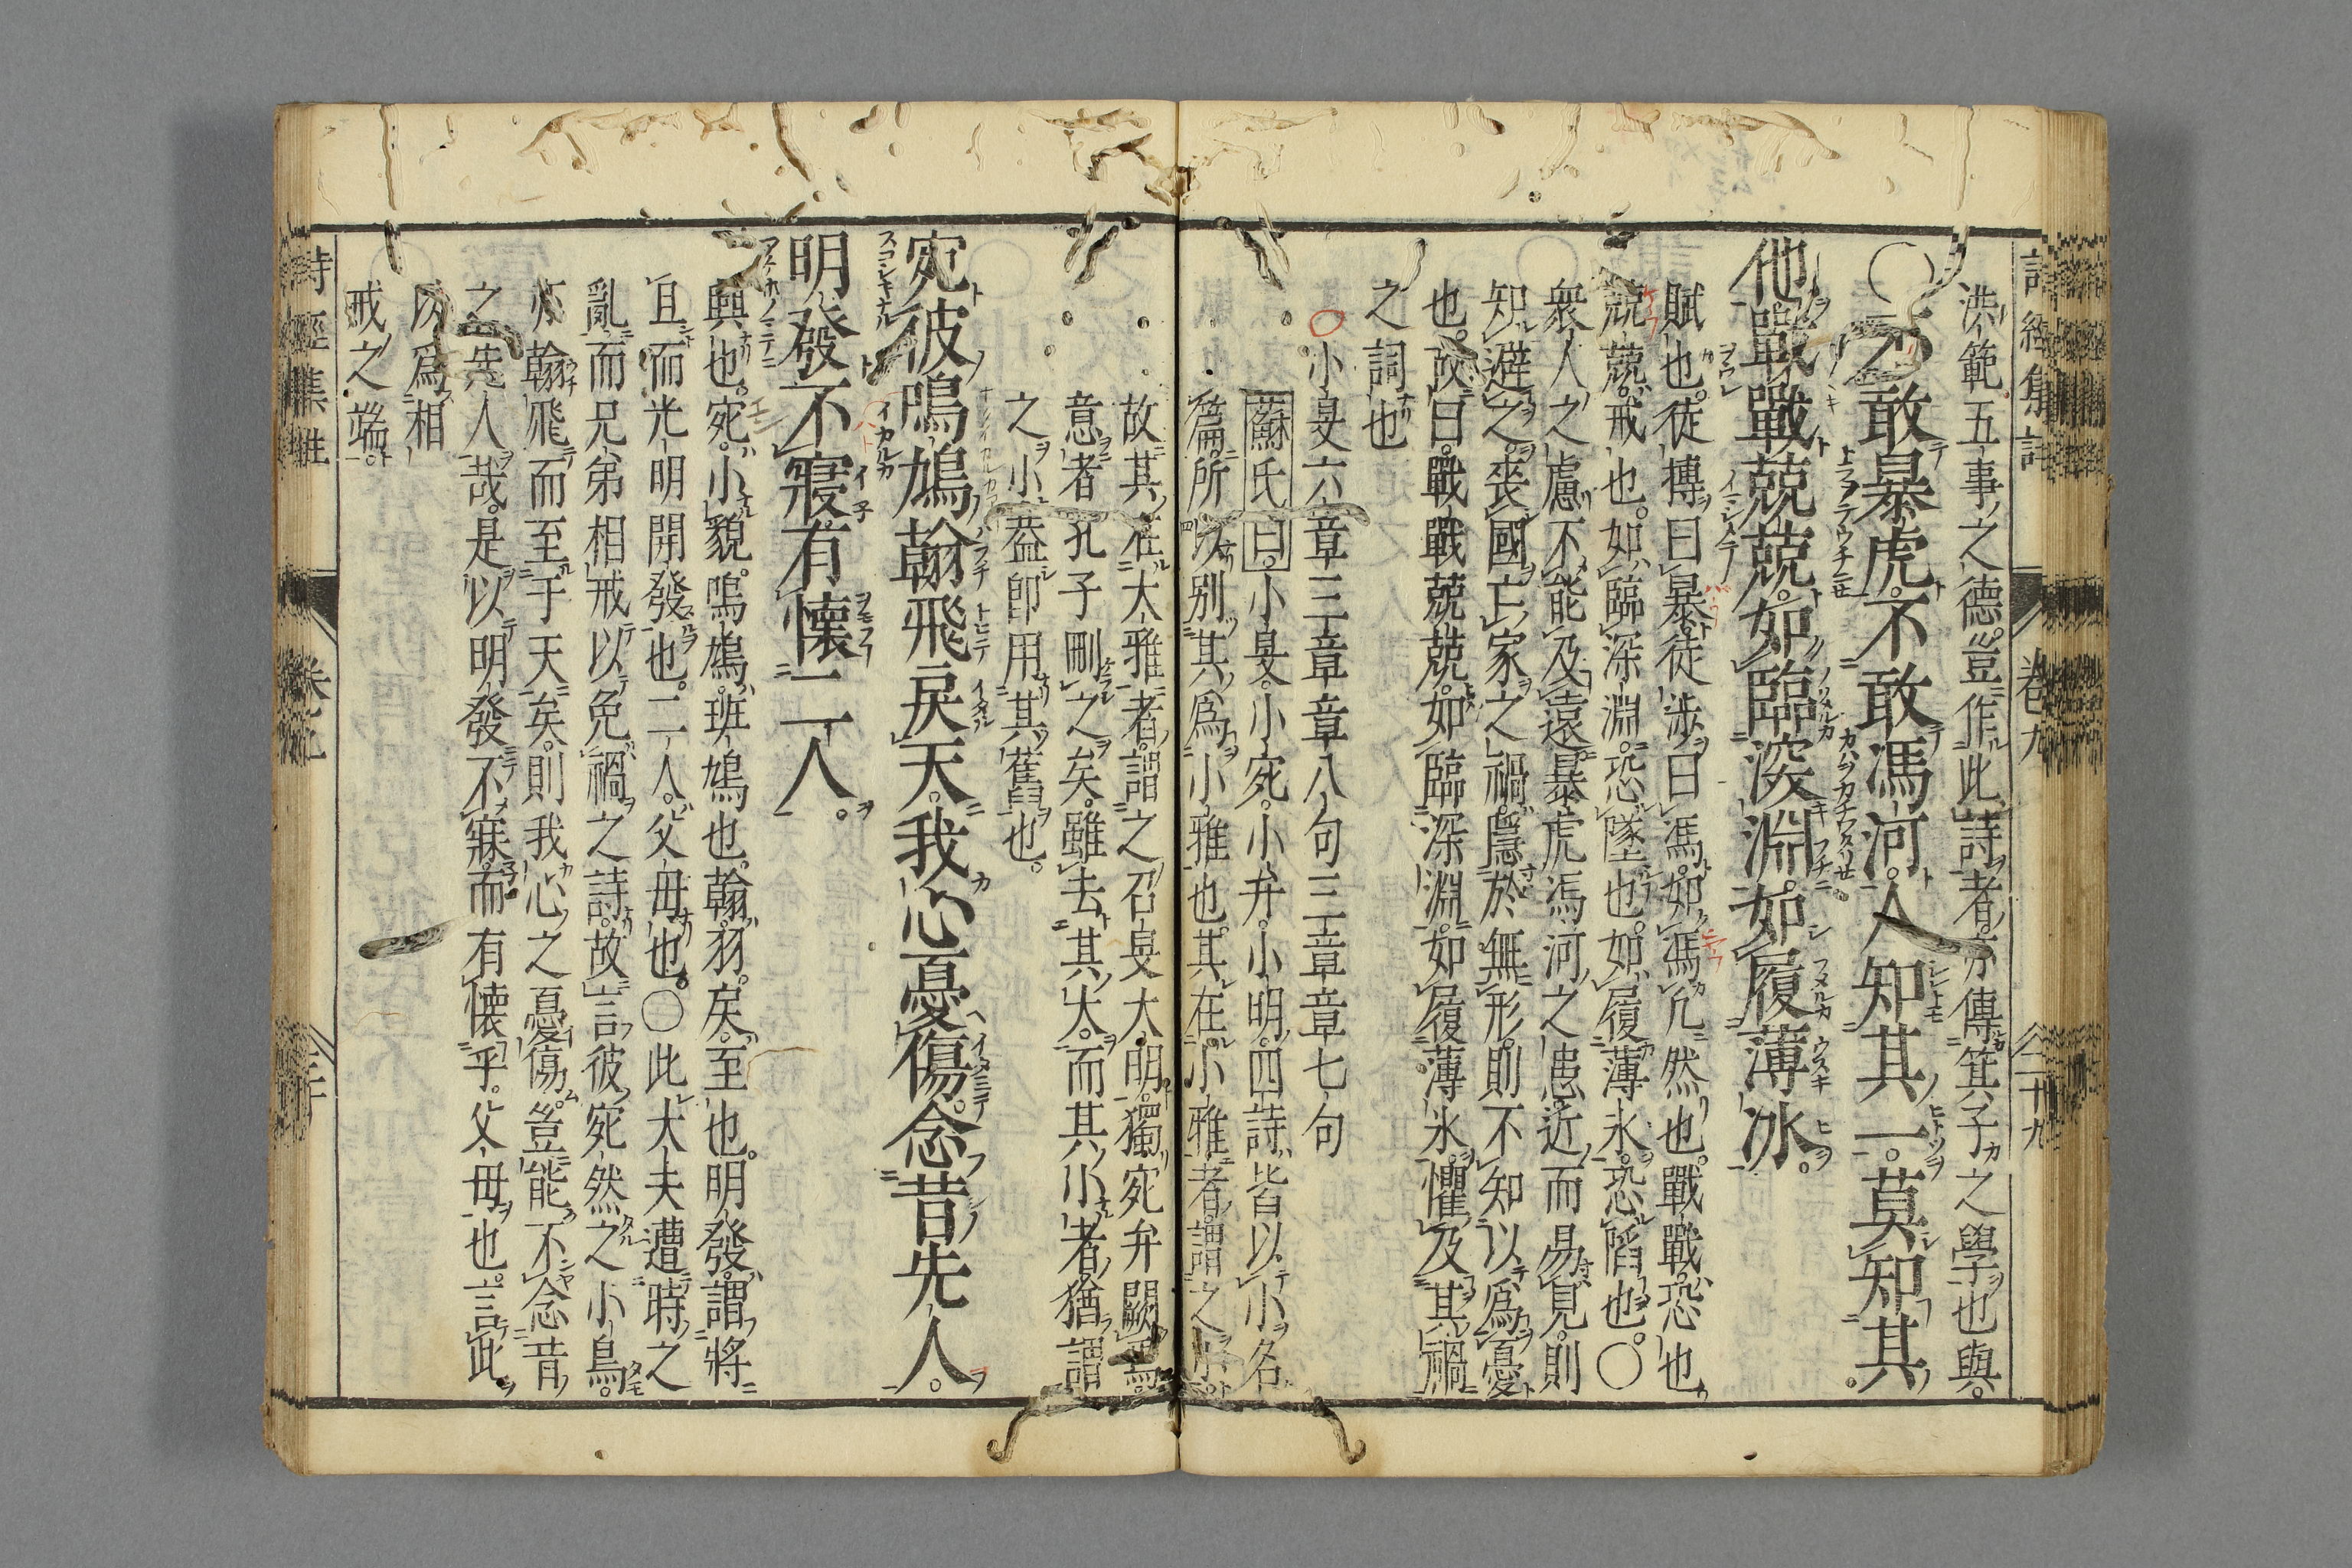 洪範五事之德豈作此詩者亦傳箕子之學也與
○不敢暴虎不敢馮河人知其一莫知其
他戰戰兢兢如臨深淵如履薄冰
賦也徒搏曰暴徒涉曰馮如馮几然也戰戰恐也
兢兢戒也如臨深淵恐墜也如履薄氷恐陷也○
衆人之慮不能及遠暴虎馮河之患近而易見則
知避之喪國亡家之禍隱於無形則不知以爲憂
也故曰戰戰兢兢如臨深淵如履薄氷懼及其禍
之詞也
○小旻六章三章章八句三章章七句
蘇氏曰小旻小宛小弁小明四詩皆以小名
篇所以別其爲小雅也其在小雅者謂之小
故其在大雅者謂之召旻大明獨宛弁闕焉
意者孔子刪之矣雖去其大而其小者猶謂
之小葢卽用其舊也
宛彼鳴鳩翰飛戾天我心憂傷念昔先人
明發不寐有懷二人
興也宛小貌鳴鳩斑鳩也翰羽戾至也明發謂將
旦而光明開發也二人父母也○此大夫遭時之
亂而兄弟相戒以免禍之詩故言彼宛然之小鳥
亦翰飛而至于天矣則我心之憂傷豈能不念昔
之先人哉是以明發不寐而有懷乎父母也言此
以爲相
戒之端
詩經集註
卷九
二十九
詩經集註
卷九
三十